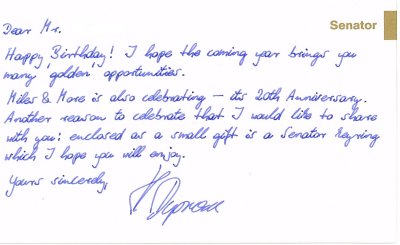 Senator
Dear Mr.
Happy Birthday! I hope the coming year brings you
many 'golden' opportunities.
Miles & More is also celebrating – its 20th Anniversary.
Another reason to celebrate that I would like to share
with you: enclosed as a small gift is a Senator keyring
which I hope you will enjoy.
Yours sincerely,